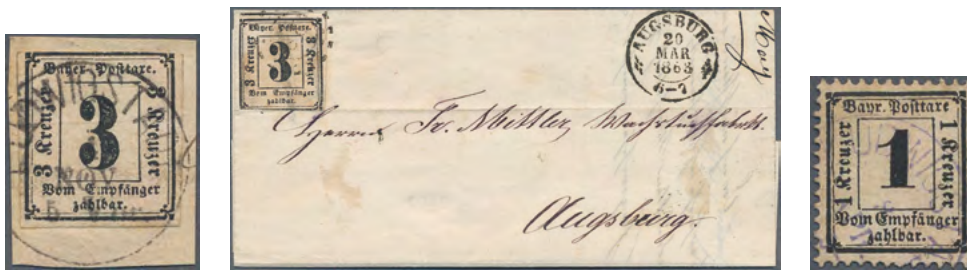 Bayer. Posttaxe.
3 Kreuzer
3
3 Kreuzer
Vom Empfänger
zahlbar.
Bayer. Posttaxe.
3 Kreuzer
3
3 Kreuzer
Vom Empfänger
zahlbar.
AUGSBURG
20
MAR
1863
6-7
Herrn Fr. Mittler, Wachstuchfabrik.
Augsburg.
Bayr. Posttaxe
1 Kreuzer
1
1 Kreuzer
Vom Empfänger
zahlbar.